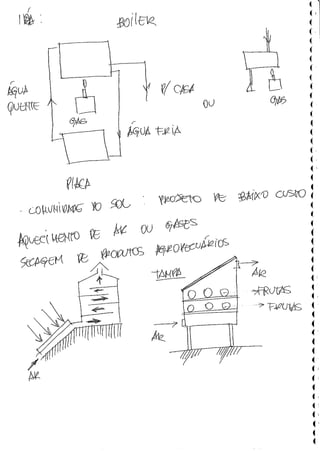 BOILER
ÁGUA
QUENTE
GÁS
P/ CASA
OU
GÁS
ÁGUA FRIA
PLACA
- COMUNIDADE DO SOL : PROJETO DE BAIXO CUSTO
AQUECIMENTO DE AR OU GASES
SECAGEM DE PRODUTOS AGROPECUÁRIOS
TAMPA
AR
→ FRUTAS
→ FRUTAS
AR
AR